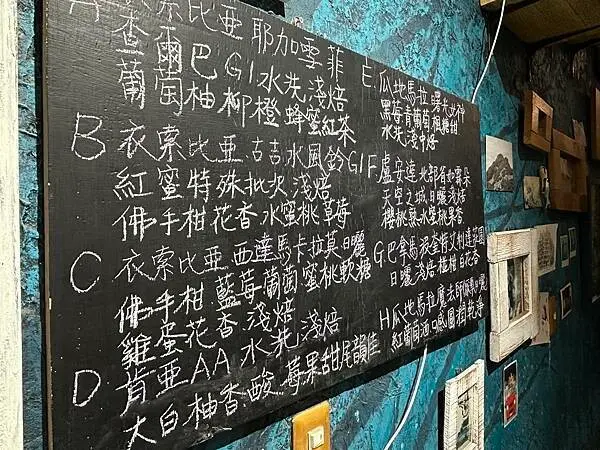 A 衣索比亞 耶加雪菲
查爾巴 G1.水洗.淺焙
葡萄柚 柳橙 蜂蜜紅茶
B 衣索比亞.古吉水風鈴G1
紅蜜特殊批次 淺焙
佛手柑 花香.水蜜桃 草莓
C 衣索比亞.西達馬卡拉莫日曬
佛手柑 藍莓葡萄 蜜桃軟糖
雞蛋花香.淺焙
D 肯亞AA 水洗.淺焙
大白柚香.酸.莓果甜尾韻佳
E.瓜地馬拉 曙光女神
黑莓青葡萄.楓糖甜
水洗.淺中焙
F.盧安達 北部 雲朵
天空之城.日曬淺焙
櫻桃 水蜜桃果香
G.巴拿馬 莊園
日曬.淺焙 柑白花香
H.瓜地馬拉魔法師 日曬
紅葡萄酒口感圓潤乾淨